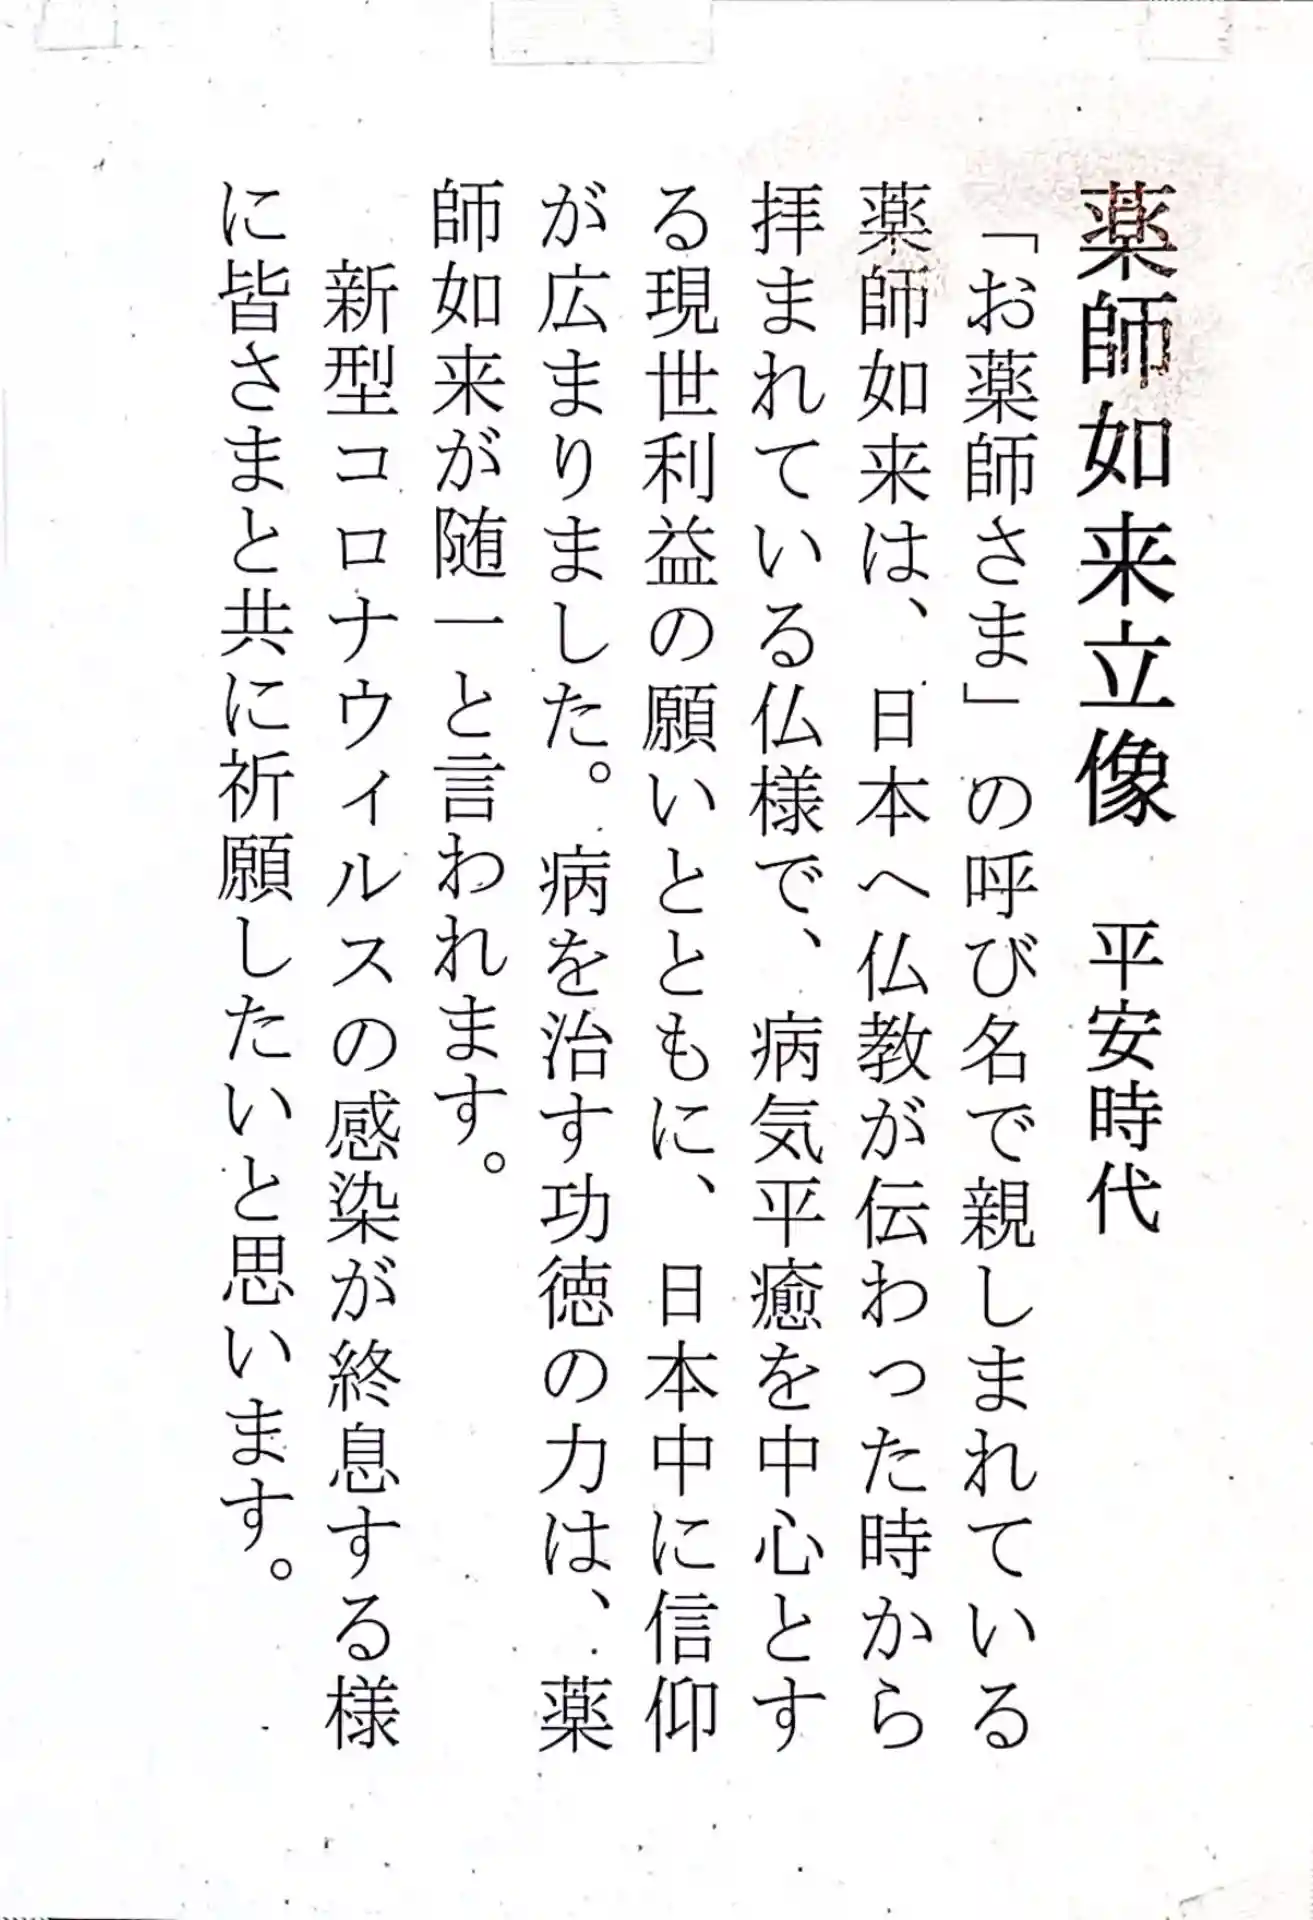 薬師如来立像　平安時代
「お薬師さま」の呼び名で親しまれている
薬師如来は、日本へ仏教が伝わった時から
拝まれている仏様で、病気平癒を中心とす
る現世利益の願いとともに、日本中に信仰
が広まりました。病を治す功徳の力は、薬
師如来が随一と言われます。
　新型コロナウィルスの感染が終息する様
に皆さまと共に祈願したいと思います。